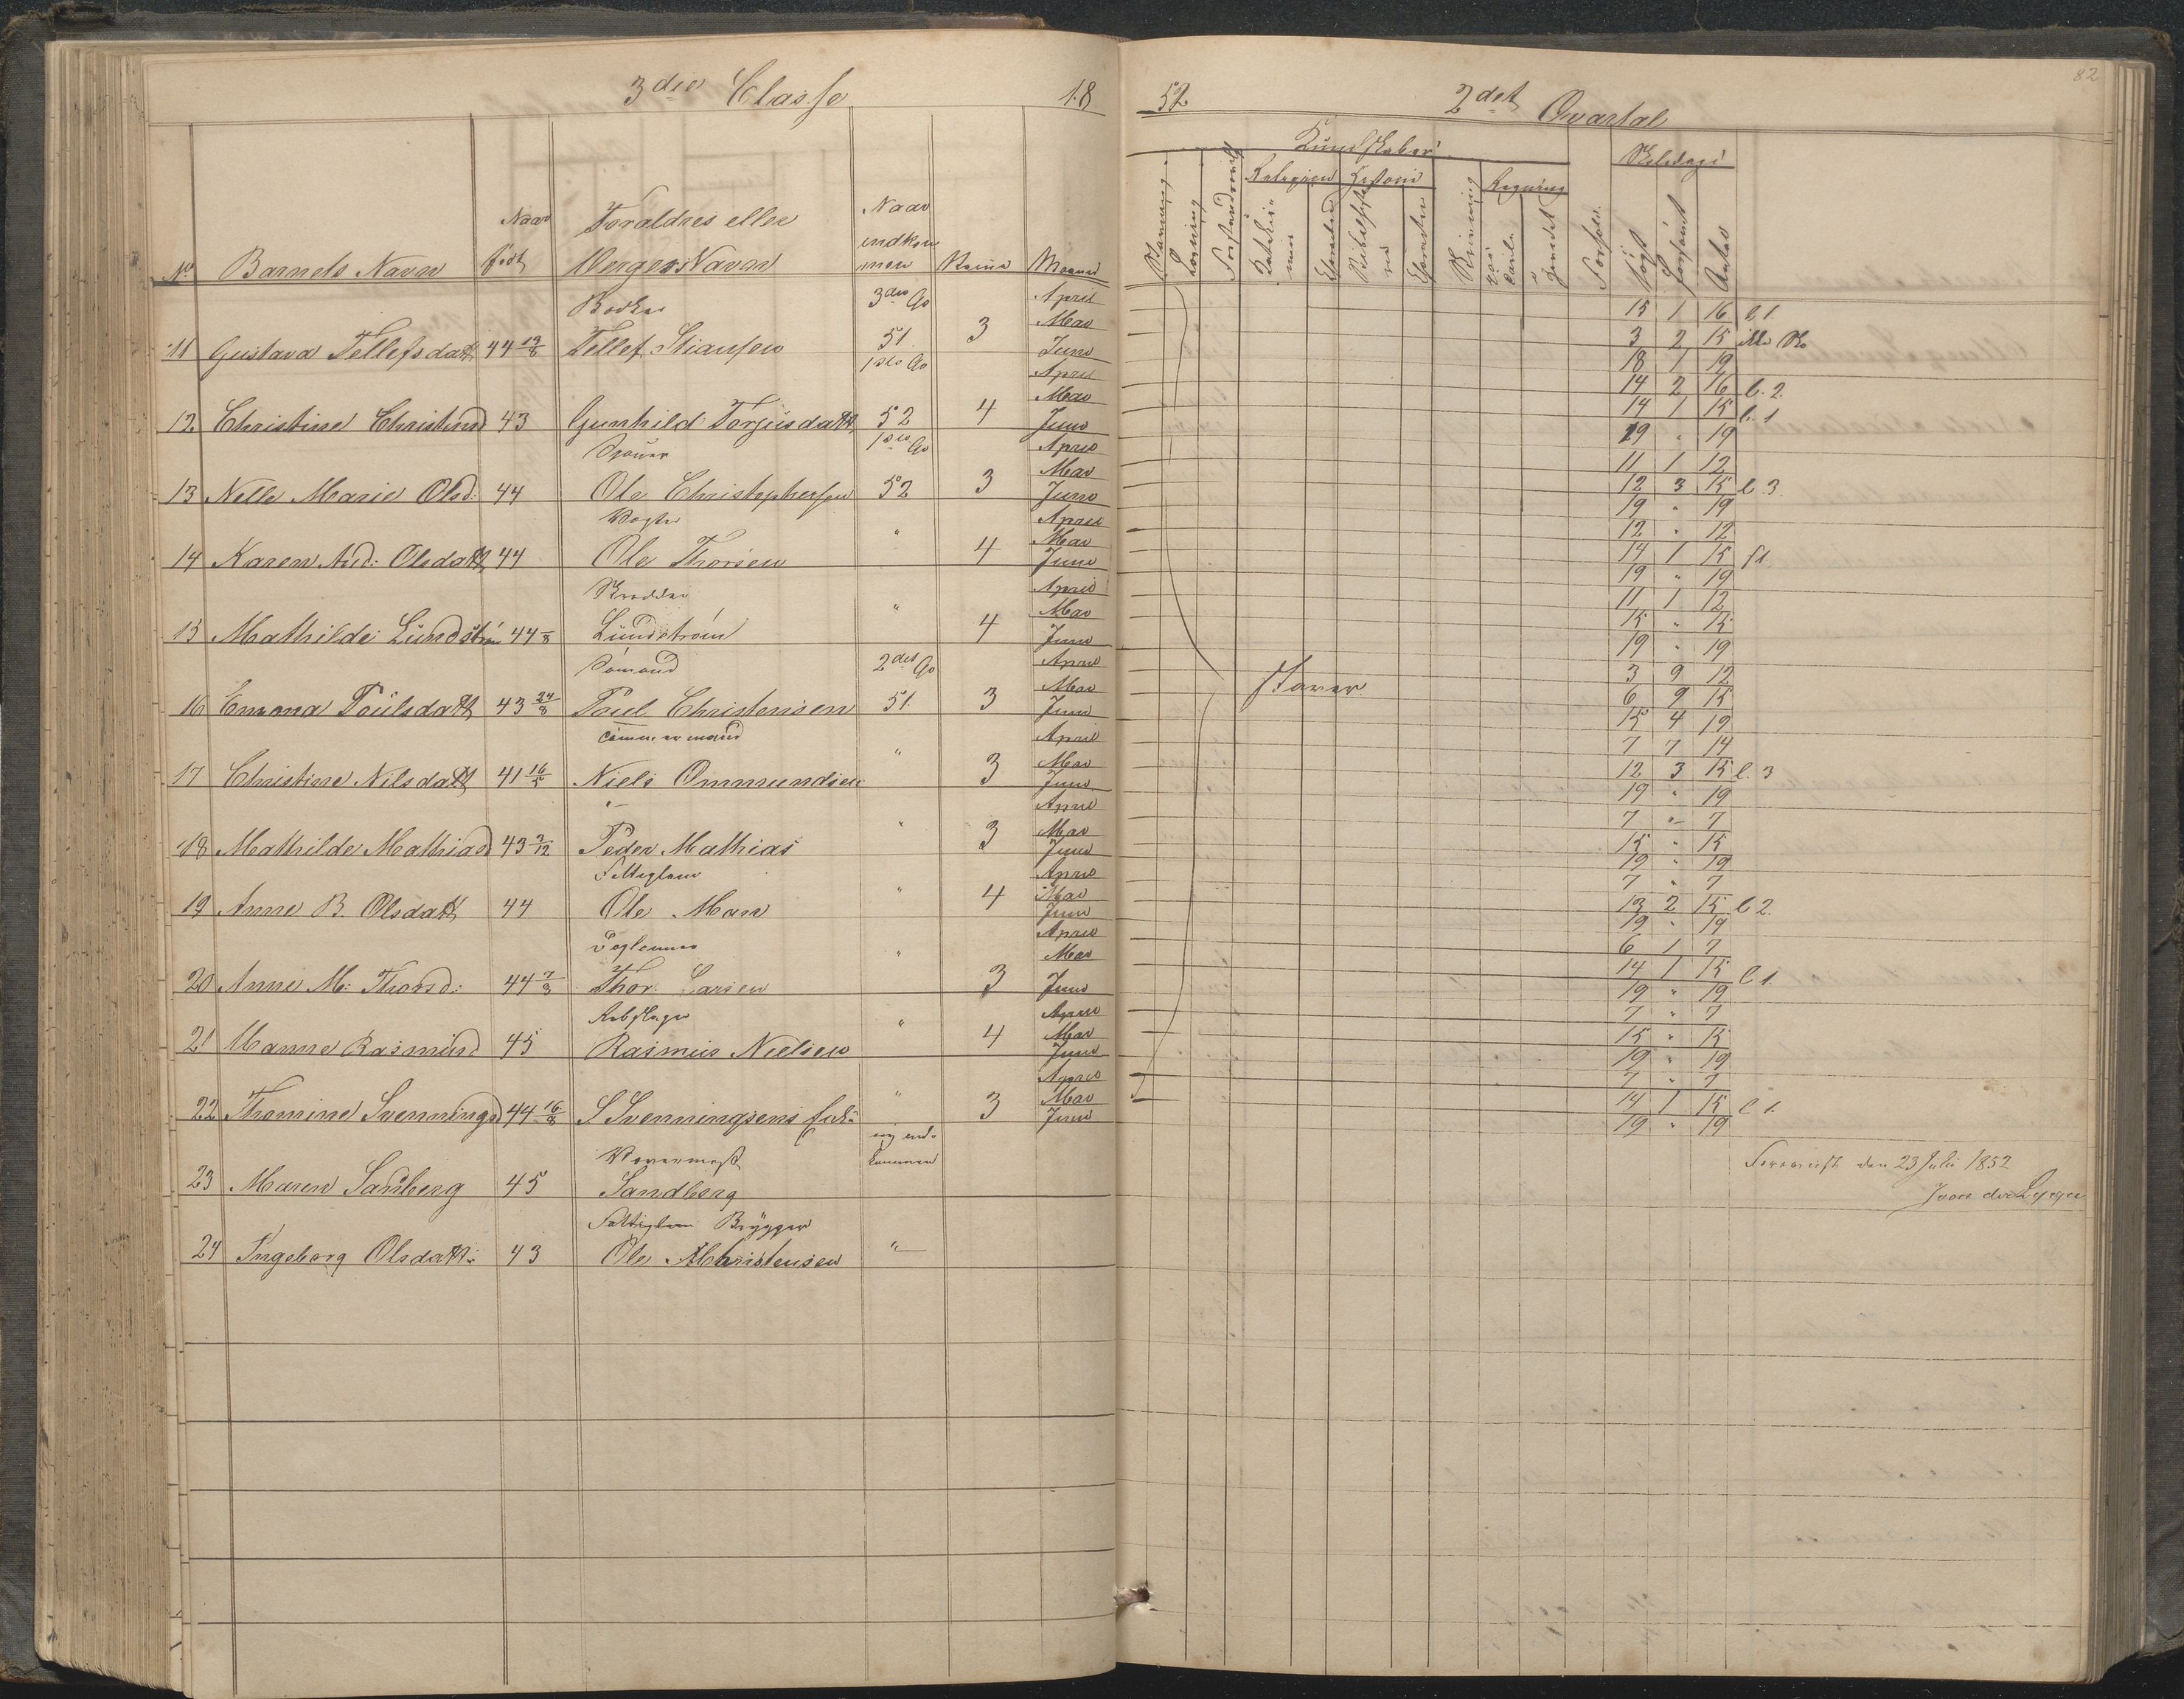 3die Classe 18
52 2det Qvartal
82
Kundskaber
Skoledage
Religion Historie Regning
No Barnets Navn Naar født Foraldres eller Verges Navn Naar indkommen Maaned
Stavning Læsning Forstandsøvelse Forhold Søgt Forsømt Antal
Bødker 3die Qv April 15 1 16 l. 1
11 Gustava Tellefsdatt 44 19/8 Tellef Stiansen 51 3 Mai 3 2 15
Juni 18 1 19
1ste Qv April 14 2 16 l. 2.
12 Christine Christensd 43 Gunhild Torjusdatt 52 4 Mai 14 1 15 l. 1
Juni 19 " 19
1ste Qv April 11 1 12
13 Nelle Marie Olsd: 44 Ole Christophersen 52 3 Mai 12 3 15 l. 3.
Juni 19 " 19
Vogter April 12 " 12
14 Karen And: Olsdatt 44 Ole Thorsen " 4 Mai 14 1 15
Juni 19 " 19
Skredder April 11 1 12
15 Mathilde Lundstrøm 44 Lundstrøm " 4 Mai 15 " 15
Juni 19 " 19
Sømand 2det Qv April 3 9 12
16 Emma Poulsdatt 43 24/8 Poul Christensen 51. 3 Mai 6 9 15
Juni 15 4 19
Tømmermand April 7 7 14
17 Christine Nilsdatt 41 16/5 Niels Ommundsen " 3 Mai 12 3 15 l. 3
Juni 19 " 19
"- April 7 "- 7
18 Mathilde Mathiasd 43 3/12 Peder Mathias " 3 Mai 15 " 15
Juni 19 " 19
Fattiglem April 7 " 7
19 Anne B. Olsdatt 44 Ole Man " 4 Mai 13 2 15 l 2.
Juni 19 " 19
April 6 1 7
20 Anne M: Thorsd: 44 7/8 Thor Larsen " 3 Mai 14 1 15 l 1.
Juni 19 " 19
Rebslager April 7 " 7
21 Manne Rasmusd 45 Rasmus Nielsen " 4 Mai 15 " 15
Juni 19 " 19
April 7 " 7
22 Thomine Svenningsd 44 16/8 S Svenningsens Enke " 3 Mai 14 1 15 l 1.
Juni 19 " 19
ny ind- kommen
23 Maren Sandberg 45 Sandberg
Fattiglem Brygger
24 Ingeborg Olsdatt: 43 Ole Christensen "
Foreviist den 23 Juli 1852